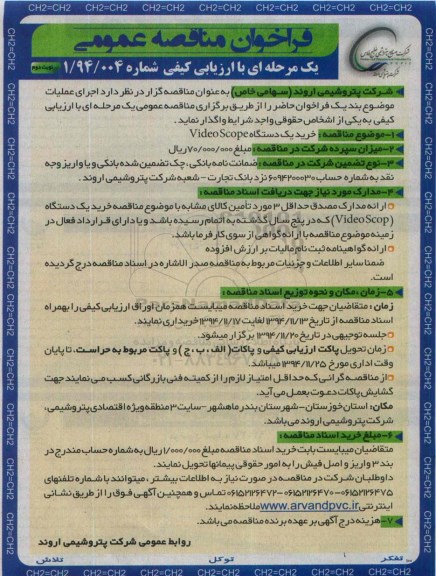 فراخوان مناقصه عمومی
یک مرحله ای با ارزیابی کیفی شماره ۱/۹۴/۰۰۴ نوبت دوم
شرکت پتروشیمی اروند (سهامی خاص) به عنوان مناقصه گزار در نظر دارد اجرای عملیات
موضوع بند یک فراخوان حاضر را از طریق برگزاری مناقصه عمومی یک مرحله ای با ارزیابی
کیفی به یکی از اشخاص حقوقی واجد شرایط واگذار نماید.
۱-موضوع مناقصه: خرید یک دستگاه VideoScope
۲-میزان سپرده شرکت در مناقصه: مبلغ ۷۰/۰۰۰/۰۰۰ ریال
۳-نوع تضمین شرکت در مناقصه: ضمانت نامه بانکی، چک تضمین شده بانکی و یا واریز وجه
نقد به شماره حساب ۶۰۹۴۲۰۰۰۳۰ نزد بانک تجارت - شعبه شرکت پتروشیمی اروند.
۴-مدارک مورد نیاز جهت دریافت اسناد مناقصه:
ارائه مدارک مصدق حداقل ۳ مورد تأمین کالای مشابه با موضوع مناقصه خرید یک دستگاه
(VideoScop) که در پنج سال گذشته به اتمام رسیده باشد و یا دارای قرارداد فعال در
زمینه موضوع مناقصه با ارائه گواهی از سوی کارفرما باشد.
ارائه گواهینامه ثبت نام مالیات بر ارزش افزوده
ضمنا سایر اطلاعات و جزئیات مربوط به مناقصه صدر الاشاره در اسناد مناقصه درج گردیده
است.
۵-زمان، مکان و نحوه توزیع اسناد مناقصه:
زمان: متقاضیان جهت خرید اسناد مناقصه میبایست همزمان اوراق ارزیابی کیفی را بهمراه
اسناد مناقصه از تاریخ ۱۳۹۴/۱۱/۱۳ لغایت ۱۳۹۴/۱۱/۱۷ خریداری نمایند.
جلسه توجیهی در تاریخ ۱۳۹۴/۱۱/۲۰ برگزار میشود.
زمان تحویل پاکت ارزیابی کیفی و پاکات (الف، ب، ج) و پاکت مربوط به حراست، تا پایان
وقت اداری مورخ ۱۳۹۴/۱۱/۲۵ میباشد.
از مناقصه گرانی که حداقل امتیاز لازم را از کمیته فنی بازرگانی کسب می نمایند جهت
گشایش پاکات دعوت بعمل می آید.
مکان: استان خوزستان - شهرستان بندر ماهشهر - سایت ۳ منطقه ویژه اقتصادی پتروشیمی،
شرکت پتروشیمی اروند می باشد.
۶-مبلغ خرید اسناد مناقصه:
متقاضیان میبایست بابت خرید اسناد مناقصه مبلغ ۱/۰۰۰/۰۰۰ ریال به شماره حساب مندرج در
بند ۳ واریز و اصل فیش را به امور حقوقی پیمانها تحویل نمایند.
داوطلبان شرکت در مناقصه در صورت نیاز به اطلاعات بیشتر، میتوانند با شماره تلفنهای
۰۶۱۵۲۱۲۶۴۷۵-۰۶۱۵۲۱۲۶۴۷۰-۰۶۱۵۲۱۲۶۴۷۲ تماس و همچنین آگهی فوق را از طریق نشانی
اینترنتی www.arvandpvc.ir ملاحظه نمایند.
۷-هزینه درج آگهی بر عهده برنده مناقصه می باشد.
روابط عمومی شرکت پتروشیمی اروند
تفکر توکل تلاش